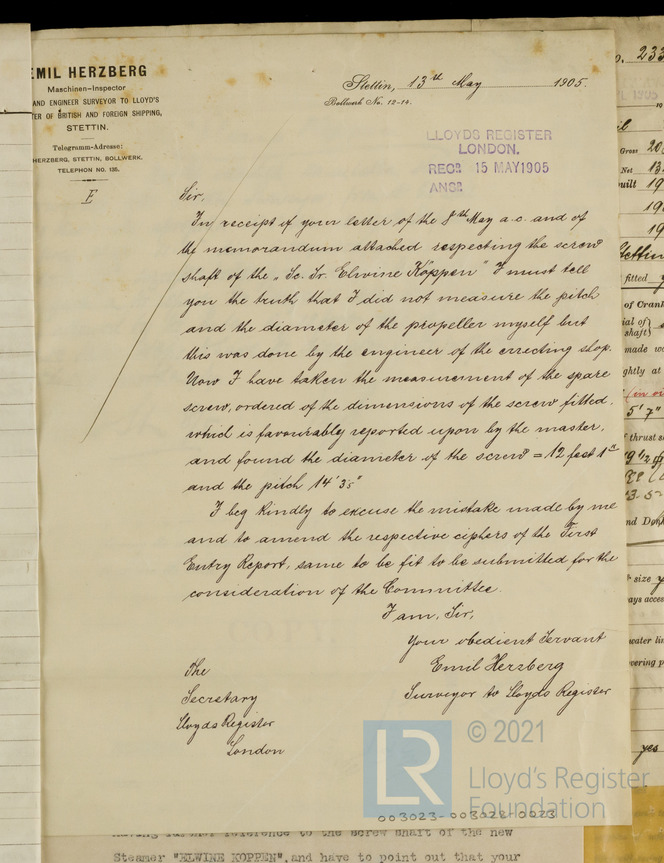 EMIL HERZBERG
Maschinen-Inspector
AND ENGINEER SURVEYOR TO LLOYD'S
OF BRITISH AND FOREIGN SHIPPING,
STETTIN.
Telegramm-Adresse:
HERZBERG, STETTIN, BOLLWERK.
TELEPHON NO. 135.
E
Stettin, 13th May 1905.
Bollwerk No. 12-14.
LLOYDS REGISTER
LONDON.
RECD. 15 MAY 1905
ANSD.
Sir,
In receipt of your letter of the 8th May a.c. and of
the memorandum attached respecting the screw
shaft of the „Sc. Sr. Elwine Köppen" I must tell
you the truth that I did not measure the pitch
and the diameter of the propeller myself but
this was done by the engineer of the errecting shop.
Now I have taken the measurement of the spare
screw, ordered of the dimensions of the screw fitted,
which is favourably reported upon by the master,
and found the diameter of the screw = 12 feet 1"
and the pitch 14' 3
I beg kindly to excuse the mistake made by me
and to amend the respective ciphers of the First
Entry Report, same to be fit to be submitted for the
consideration of the Committee.
I am, Sir,
Your obedient Servant
Emil Herzberg
Surveyor to Lloyds Register
The
Secretary
Lloyds Register
London
LR
© 2021
Lloyd's Register
Foundation
003023-003028-0023
having further reference to the screw shaft of the new
Steamer "ELWINE KOPPEN", and have to point out that your
233
Gross 20
Net 13
built 19
19
19
Stettin
fitted
of Crank
shaft
made
ghtly at
5' 7"
thrust
size
ways acces
water
vering
yes